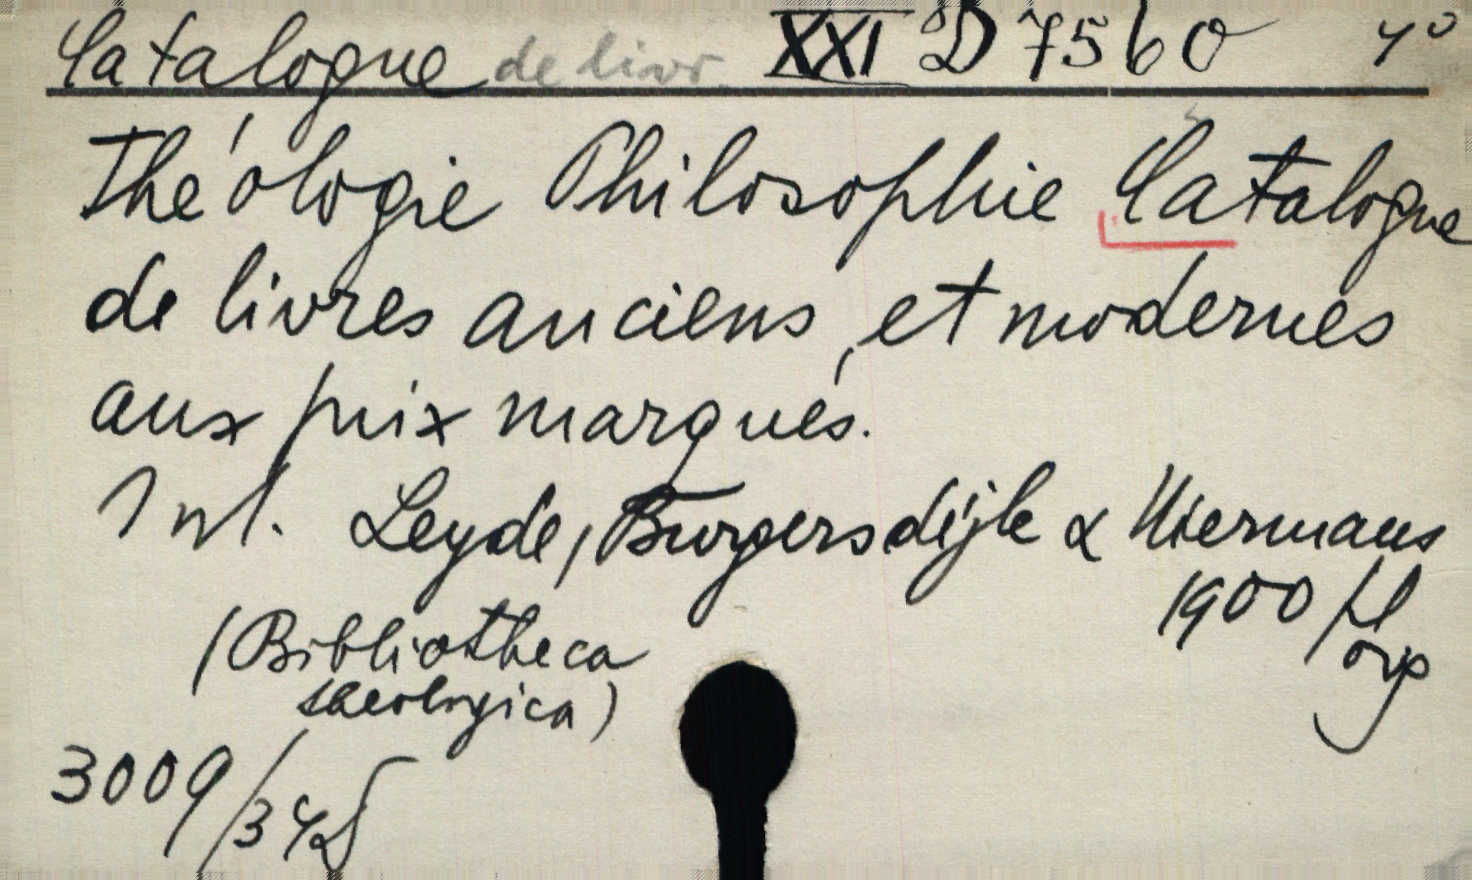 Catalogue de livr XXI D 7560 4°
Théologie Philosophie Catalogue
de livres anciens et modernes
aux prix marqués.
Leyde, Burgersdijk & Niermans
1900
(Bibliotheca
theologica)
3009/345